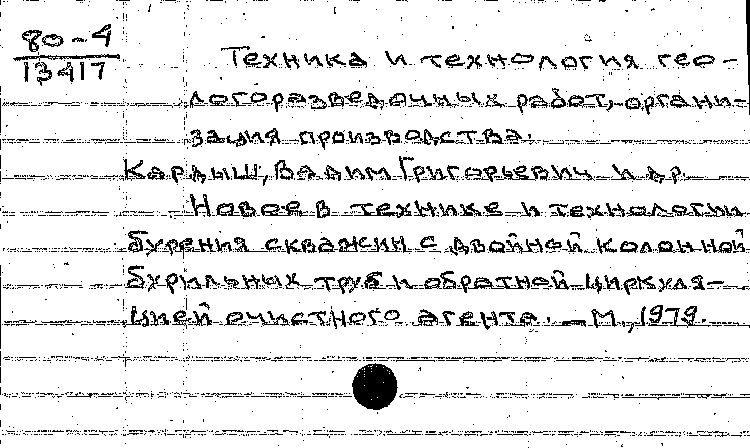 80-4
13417
Техника и технология гео-
логоразведочных работ, органи-
зация производства.
Кардыш, Вадим Григорьевич и др.
Новое в технике и технологии
бурения скважин с двойной колонной
бурильных труб и обратной циркуля-
цией очистного агента. - М., 1979.